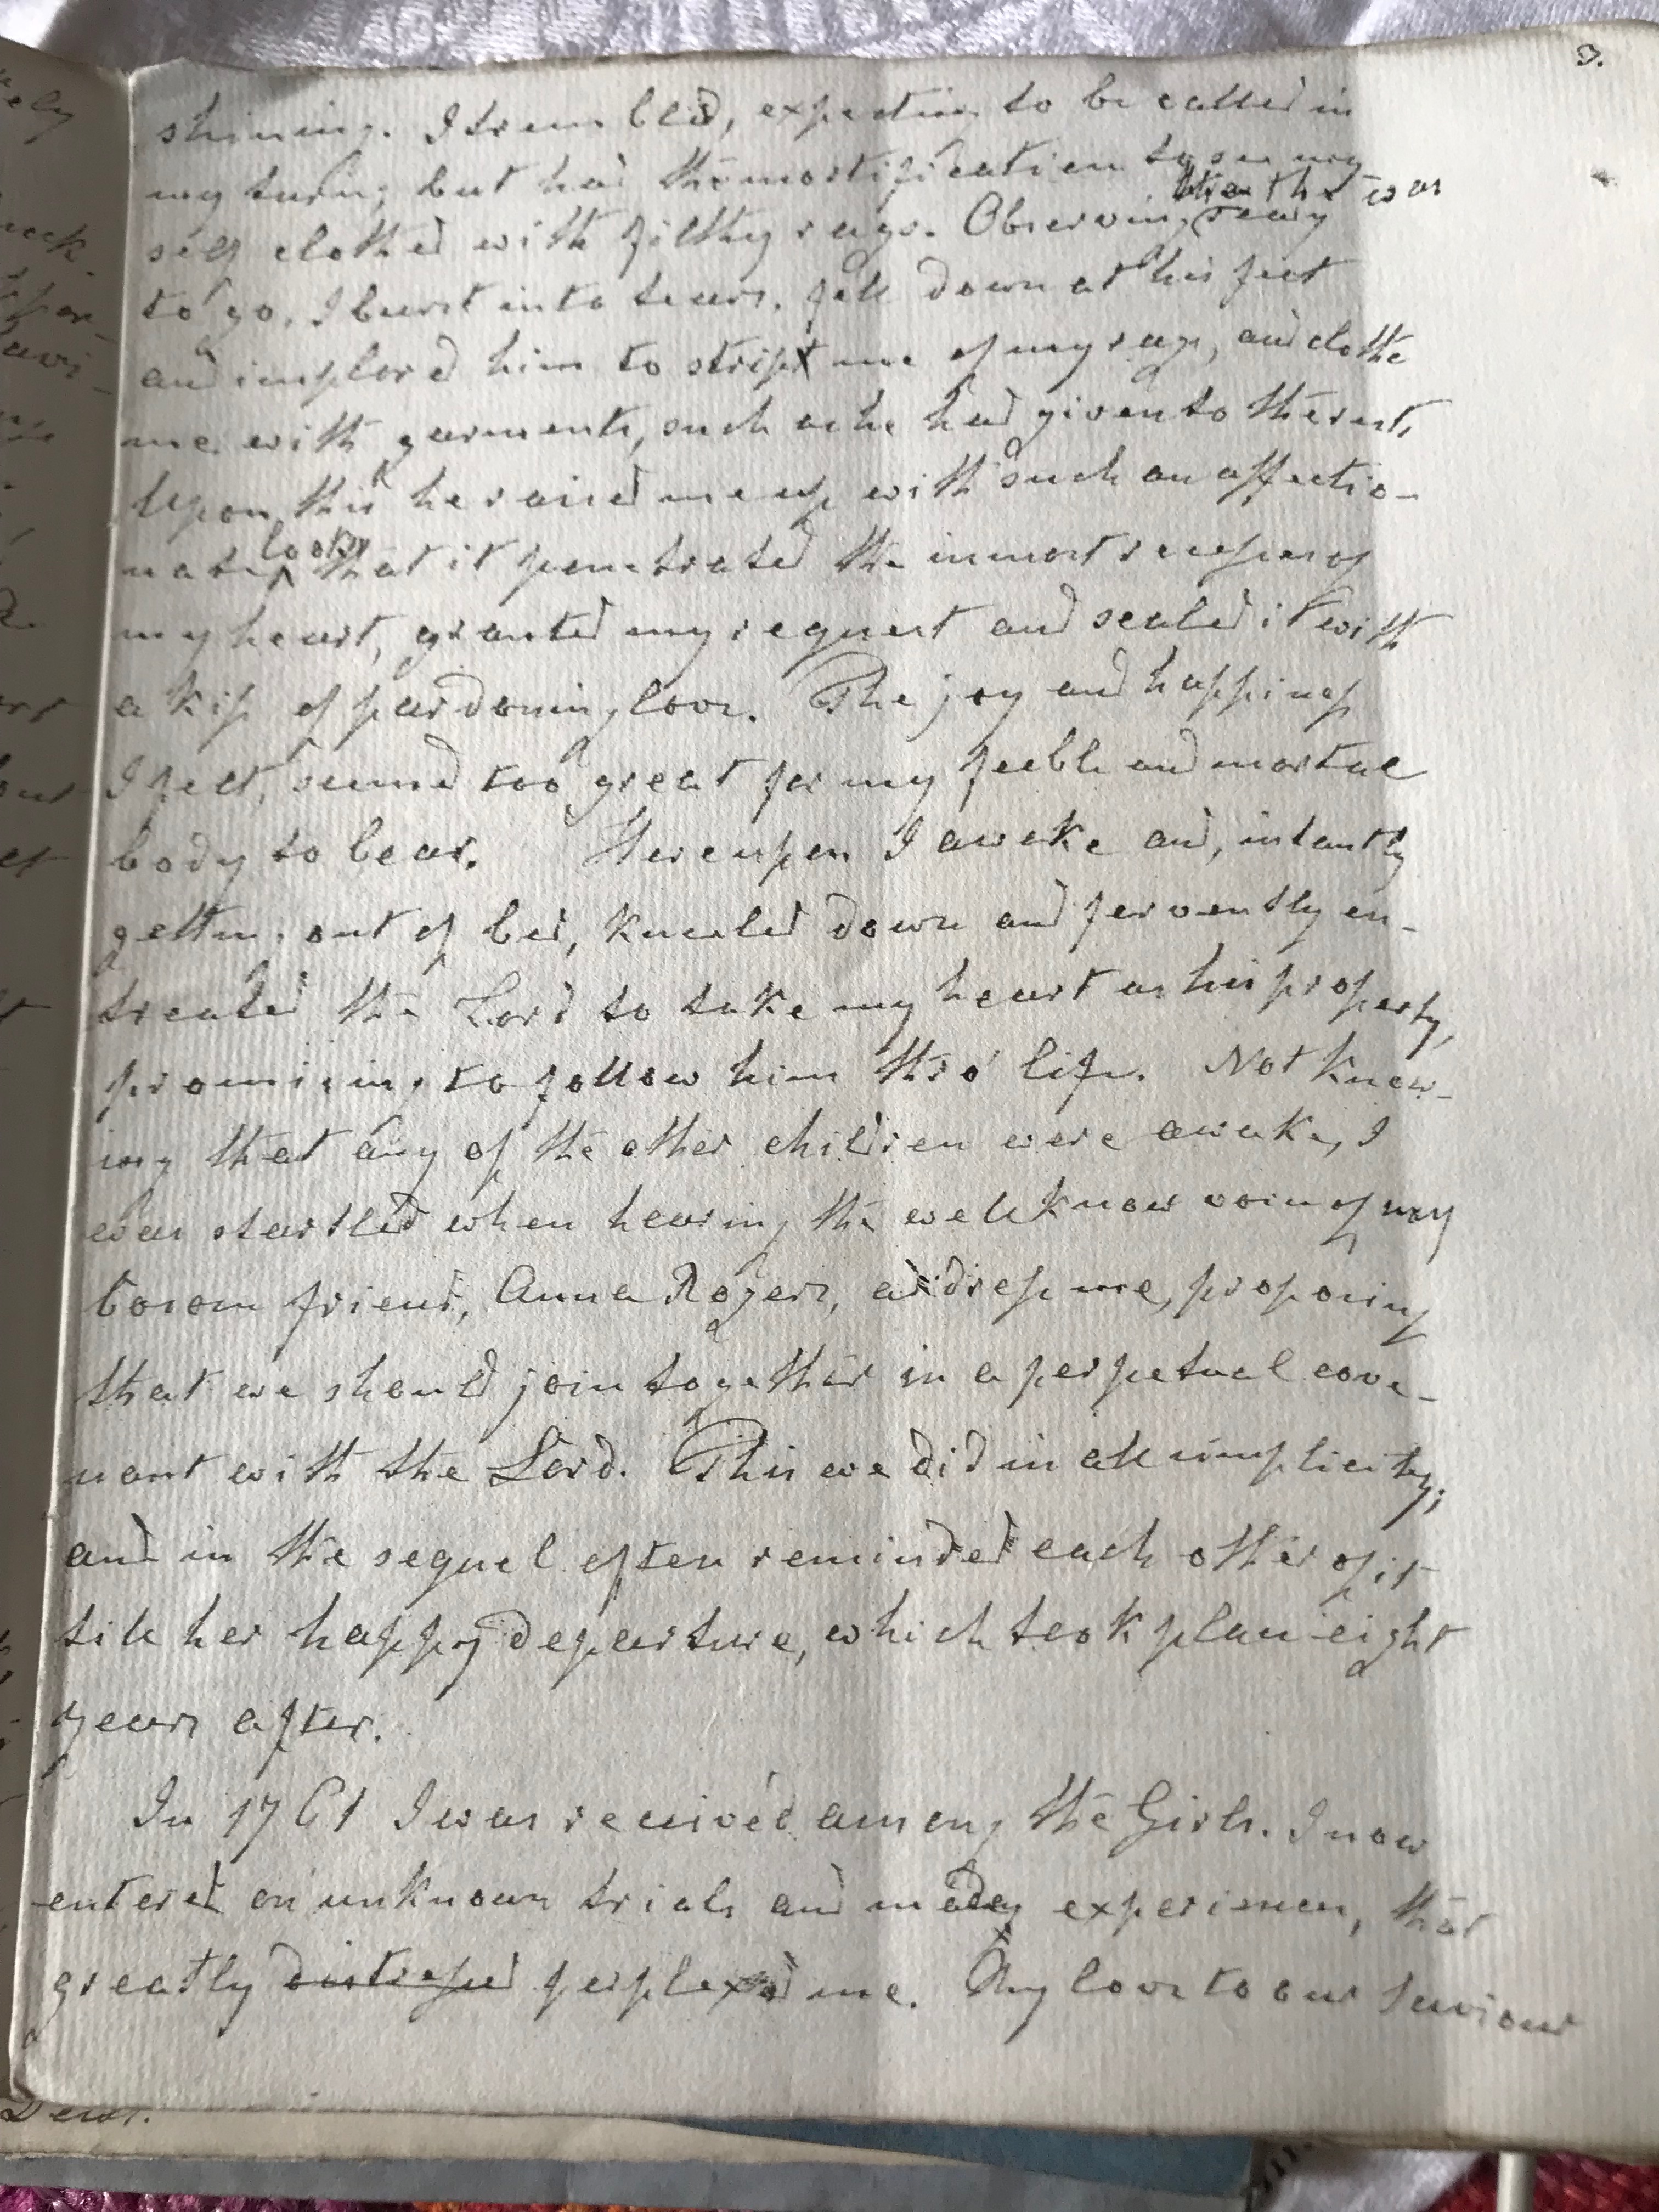 3.
shining. I trembled, expecting to be called in
my turn; but had the mortification to see my
self clothed with filthy rags. Observing that he was ready
to go, I burst into tears, fell down at his feet
and implored him to strip me of my rags, and clothe
me with garments, such as he had given to the rest.
Upon this he raised me up with such an affectio-
nate look, that it penetrated the inmost recesses of
my heart, granted my request and sealed it with
a kiss of pardoning love. The joy and happiness
I felt, seemed too great for my feeble and mortal
body to bear. Hereupon I awoke and, instantly
getting out of bed, kneeled down and fervently en-
treated the Lord to take my heart as his property,
promising to follow him thro' life. Not know-
ing that any of the other children were awake, I
was startled when hearing the well know voice of my
bosom friend, Anna Rogers, address me, proposing
that we should join together in a perpetual cove-
nant with the Lord. This we did in all simplicity;
and in the sequel often reminded each other of it
till her happy departure, which took place eight
years after.
In 1761 I was received among the Girls. I now
entered on unknown trials and made experiences, that
greatly distressed perplexed me. My love to our Saviour
Dear.